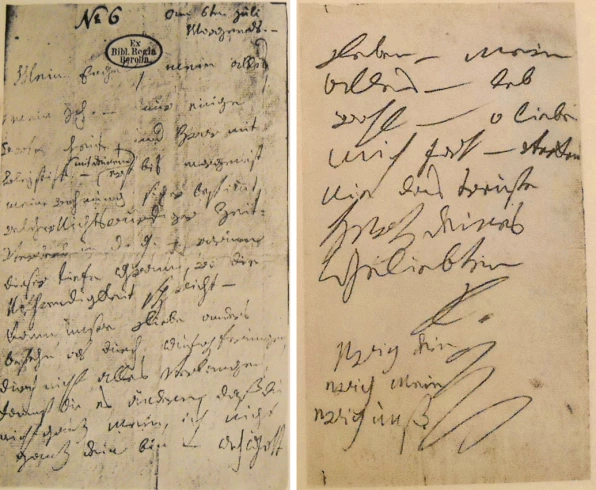 No 6
am 6ten Juli
Morgends. –
Ex
Bibl. Regia
Berolin.
Mein Engel, mein alles
mein Ich. – nur einige
Worte heute, und zwar mit
Bleystift – (mit deinem)
erst bis morgen ist
meine Wohnung sicher bestimmt,
welcher Nichtswürdiger Zeit-
verderb in d. g. – warum
dieser tiefe Gram, wo die
Nothwendigkeit spricht –
Kann unsre Liebe anders
bestehn als durch Aufopferungen,
durch nicht alles verlangen,
kannst du es ändern, daß du
nicht ganz mein, ich nicht
ganz dein bin – Ach Gott
Leben – mein
alles – leb
wohl – o liebe
mich fort –
nie das treuste
Herz deines
Geliebten
L.
ewig dein
ewig mein
ewig unß